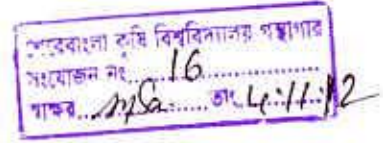 শেরেবাংলা কৃষি বিশ্ববিদ্যালয় গ্রন্থাগার
সংযোজন নং......16..................
স্বাক্ষর.............তাং 4.11.12